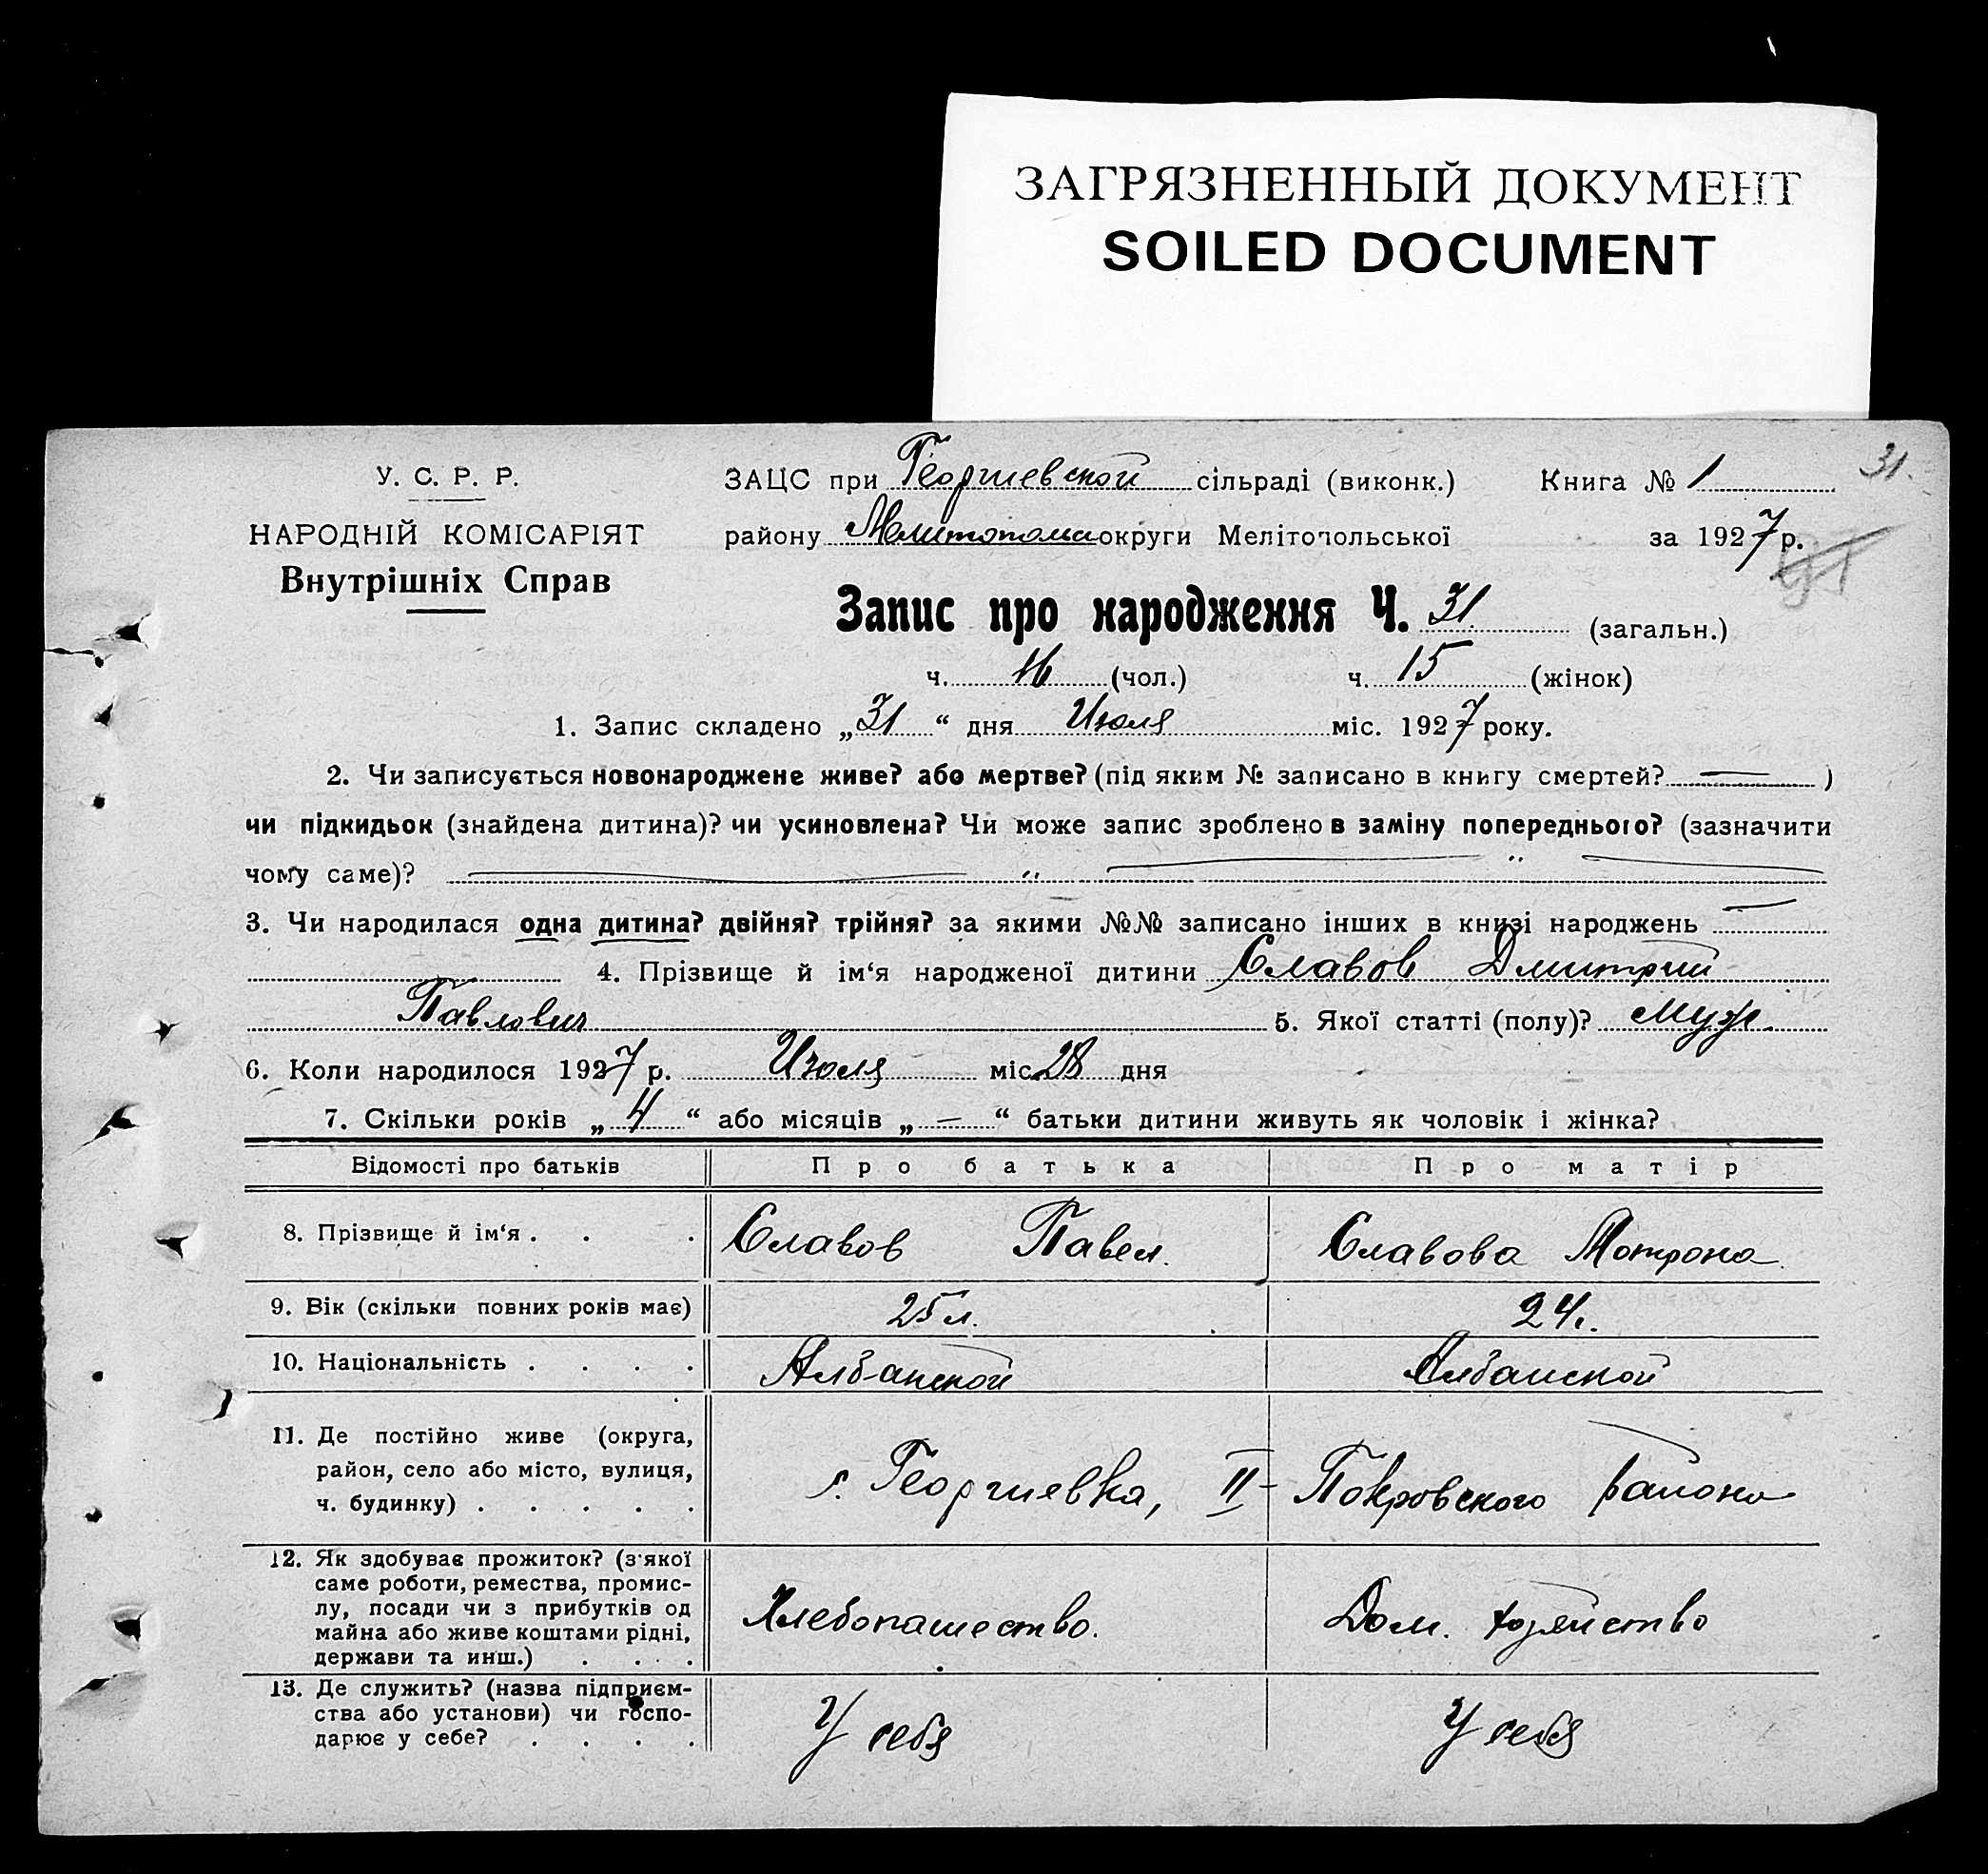 ЗАГРЯЗНЕННЫЙ ДОКУМЕНТ
SOILED DOCUMENT
31.
У. С. Р. Р.
НАРОДНІЙ КОМІСАРІЯТ
Внутрішніх Справ
ЗАЦС при Георгиевской сільраді (виконк.) Книга № 1
району округи Мелітопольської за 1927 р.
Запис про народження Ч. 31. (загальн.)
ч. 16 (чол.) ч. 15 (жінок)
1. Запис складено „31“ дня Июля міс. 1927 року.
2. Чи записується новонароджене живе? або мертве? (під яким № записано в книгу смертей? — )
чи підкидьок (знайдена дитина)? чи усиновлена? Чи може запис зроблено в заміну попереднього? (зазначити
чому саме)? — „ — „ —
3. Чи народилася одна дитина? двійня? трійня? за якими №№ записано інших в книзі народжень —
4. Прізвище й ім‘я народженої дитини Славов Дмитрий
Павлович 5. Якої статті (полу)? муж.
6. Коли народилося 1927 р. Июля міс. 28 дня
7. Скільки років „4“ або місяців „—“ батьки дитини живуть як чоловік і жінка?
Відомості про батьків Про батька Про матір
8. Прізвище й ім‘я . . . Славов Павел. Славова Мотрона
9. Вік (скільки повних років має) 25 л. 24 г.
10. Національність . . . . Албанской Албанской
11. Де постійно живе (округа,
район, село або місто, вулиця,
ч. будинку) . . . . . с. Георгиевка, II-Покровского района
12. Як здобуває прожиток? (з'якої
саме роботи, ремества, промис-
лу, посади чи з прибутків од
майна або живе коштами рідні,
держави та инш.) . . . . Хлебопашество. Дом. хозяйство
13. Де служить? (назва підприєм-
ства або установи) чи госпо-
дарює у себе? . . . . У себя У себя